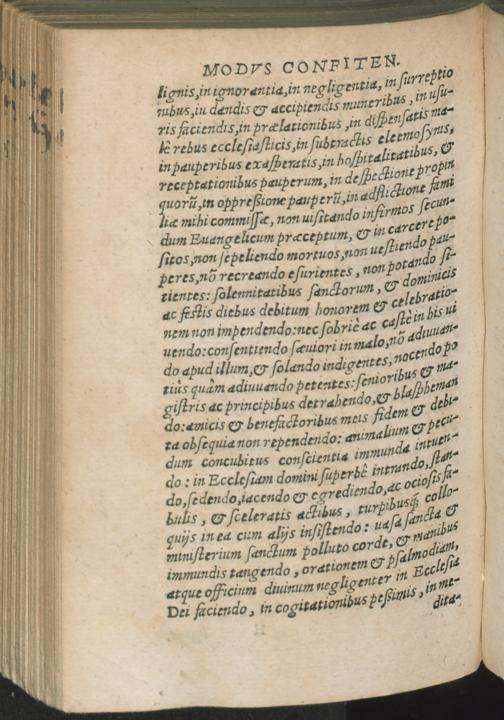 MODVS CONFITEN.
lignis, in ignorantia, in negligentia, in surreptio
nibus, iu dandis & accipiendis muneribus, in usu-
ris faciendis, in prælationibus, in dispensatis ma-
lè rebus ecclesiasticis, in subtractis eleemosynis,
in pauperibus exasperatis, in hospitalitatibus, &
receptationibus pauperum, in despectione propin
quorū, in oppreßione pauperū, in adflictione fami
liæ mihi commissæ, non uisitando infirmos secun-
dum Euangelicum præceptum, & in carcere po-
sitos, non sepeliendo mortuos, non uestiendo pau-
peres, nō recreando esurientes, non potando si-
tientes: solennitatibus sanctorum, & dominicis
ac festis diebus debitum honorem & celebratio-
nem non impendendo: nec sobriè ac castè in his ui
uendo: consentiendo sæuiori in malo, nō adiuuan-
do apud illum, & solando indigentes, nocendo po
tiùs quàm adiuuando petentes: senioribus & ma-
gistris ac principibus detrahendo, & blaspheman
do: amicis & benefactoribus meis fidem & debi-
ta obsequia non rependendo: animalium & pecu-
dum concubitus conscientia immunda intuen-
do: in Ecclesiam domini superbè intrando, stan-
do, sedendo, iacendo & egrediendo, ac ociosis fa-
bulis, & sceleratis actibus, turpibusq́; collo-
quijs in ea cum alijs insistendo: uasa sancta &
ministerium sanctum polluto corde, & manibus
immundis tangendo, orationem & psalmodiam,
atque officium diuinum negligenter in Ecclesia
Dei faciendo, in cogitationibus peßimis, in me-
dita-